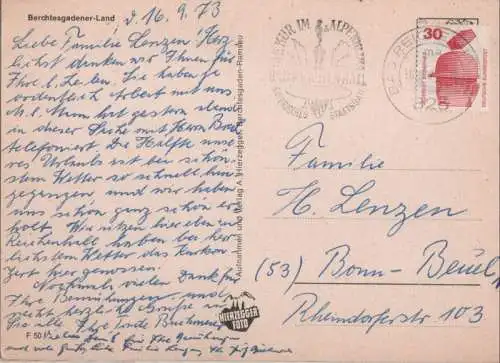 Berchtesgadener-Land
d. 16.9.73
Liebe Familie Lenzen! Herz-
lichst danken wir Ihnen für
Ihre l. Zeilen. Sie haben ja
ordentlich Arbeit mit uns.
M. l. Mann hat gestern abend
in dieser Sache mit Herrn
telefoniert. Die Hälfte unse-
res Urlaubs ist bei schön-
stem Wetter so schnell hin-
gegangen und wir haben
uns schön ganz schön er-
holt. Wir sitzen hier eben in
Reichenhall haben bei herr-
lichstem Wetter das Kurkon-
zert hier genossen.
Nochmals vielen Dank für
Ihre Bemühungen und
recht herzliche Grüße an
Sie alle Ihre
F 50
und viele Grüße Familie
Aufnahmen und Verlag A. Hierzegger, Berchtesgaden-Ramsau
HIERZEGGER
FOTO
KUR IM ALPEN
BAYERISCHES STAATSBAD
30
DEUTSCHE BUNDESPOST
Familie
H. Lenzen
(53) Bonn-Beuel
Rheindorferstr 103